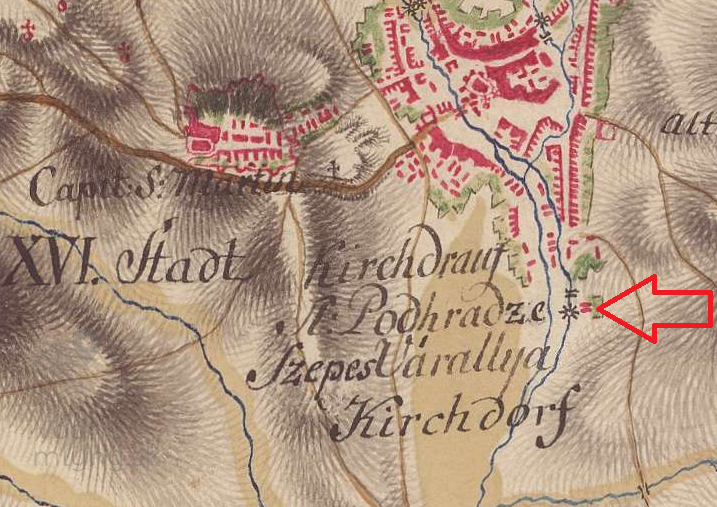 alt
Capit: St: Martin
XVI. Stadt Kirchdrauf
Podhradze
Szepes Várallya
Kirchdorf